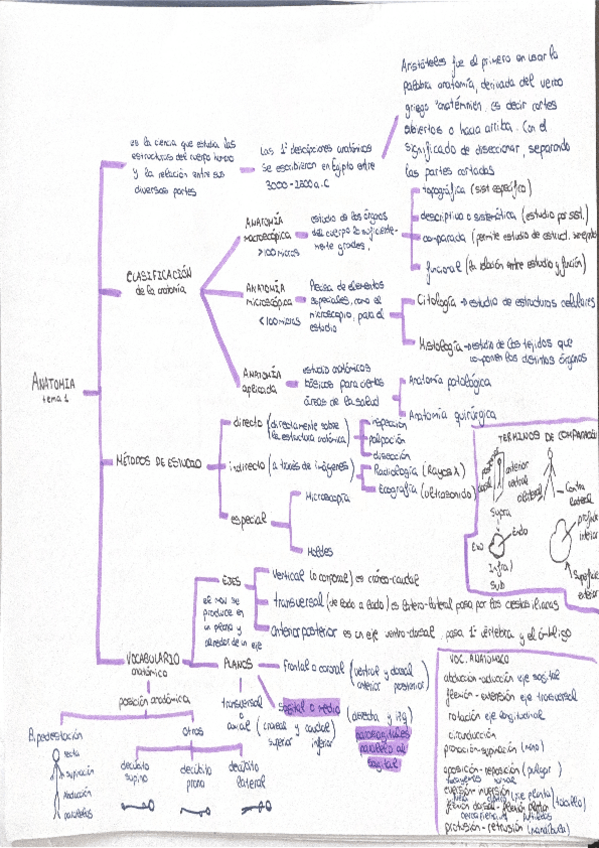 Aristóteles fue el primero en usar la
palabra anatomía, derivada del verbo
griego "anatémnien. es decir cortes
abiertos o hacia arriba. Con el
significado de diseccionar, separando
las partes cortadas
es la ciencia que estudia las
estructuras del cuerpo humano
y la relación entre sus
diversas partes
Las 1ª descripciones anatómicas
se escribieron en Egipto entre
3000-2800 a.C
ANATOMIA
tema 1
CLASIFICACIÓN
de la anatomia
ANATOMÍA
macroscópica
>100 micras
estudio de los órganos
del cuerpo lo suficiente-
mente grandes.
topográfica (sist específico)
descriptiva o sistemática (estudio por sist.)
comparada (permite estudio de estruct.
funcional (la relación entre estudio y función)
ANATOMÍA
microscópica
<100 micras
Precisa de elementos
especiales, como el
microscopio, para el
estudio
Citología → estudio de estructuras celulares
Histología → estudio de los tejidos que
componen los distintos órganos
ANATOMÍA
aplicada
estudio anatómicos
básicos para ciertas
áreas de la salud
Anatomía patológica
Anatomía quirúrgica
MÉTODOS DE ESTUDIO
directo (directamente sobre
la estructura anatómica)
inspección
palpación
disección
indirecto (a través de imágenes)
Radiología (Rayos X)
Ecografía (ultrasonido)
especial
Microscopía
Moldes
TERMINOS DE COMPARACIÓN
anterior
ventral
dorsal
Contra
lateral
Supra
Exo
Endo
Infra/
Sub
inferior
exterior
VOCABULARIO
anatómico
EJES
se mov se
produce en
un plano y
alrededor de un eje
vertical (o corporal) es cráneo-caudal
transversal (de lado a lado) es latero-lateral pasa por las crestas iliacas
anteroposterior es un eje ventro-dorsal. pasa 1ª vértebra y el ombligo
PLANOS
frontal o coronal (ventral y dorsal
anterior posterior)
sagital o medio (derecha y izq)
parasagitales
paralelo al
sagital
transversal
o
axial (craneal y caudal)
superior inferior
posición anatómica
Bipedestación
recta
supinación
abducción
paralelos
otros
decúbito
supino
decúbito
prono
decúbito
lateral
VOC. ANATOMICO
abducción-aducción eje sagital
flexión-extensión eje trasversal
rotación eje longitudinal
circunducción
pronación-supinación (mano)
oposición-reposición (pulgar)
eversión-inversión (pie planta)
flexión dorsal-flexión plantar (tobillo)
protusión-retrusión (mandíbula)